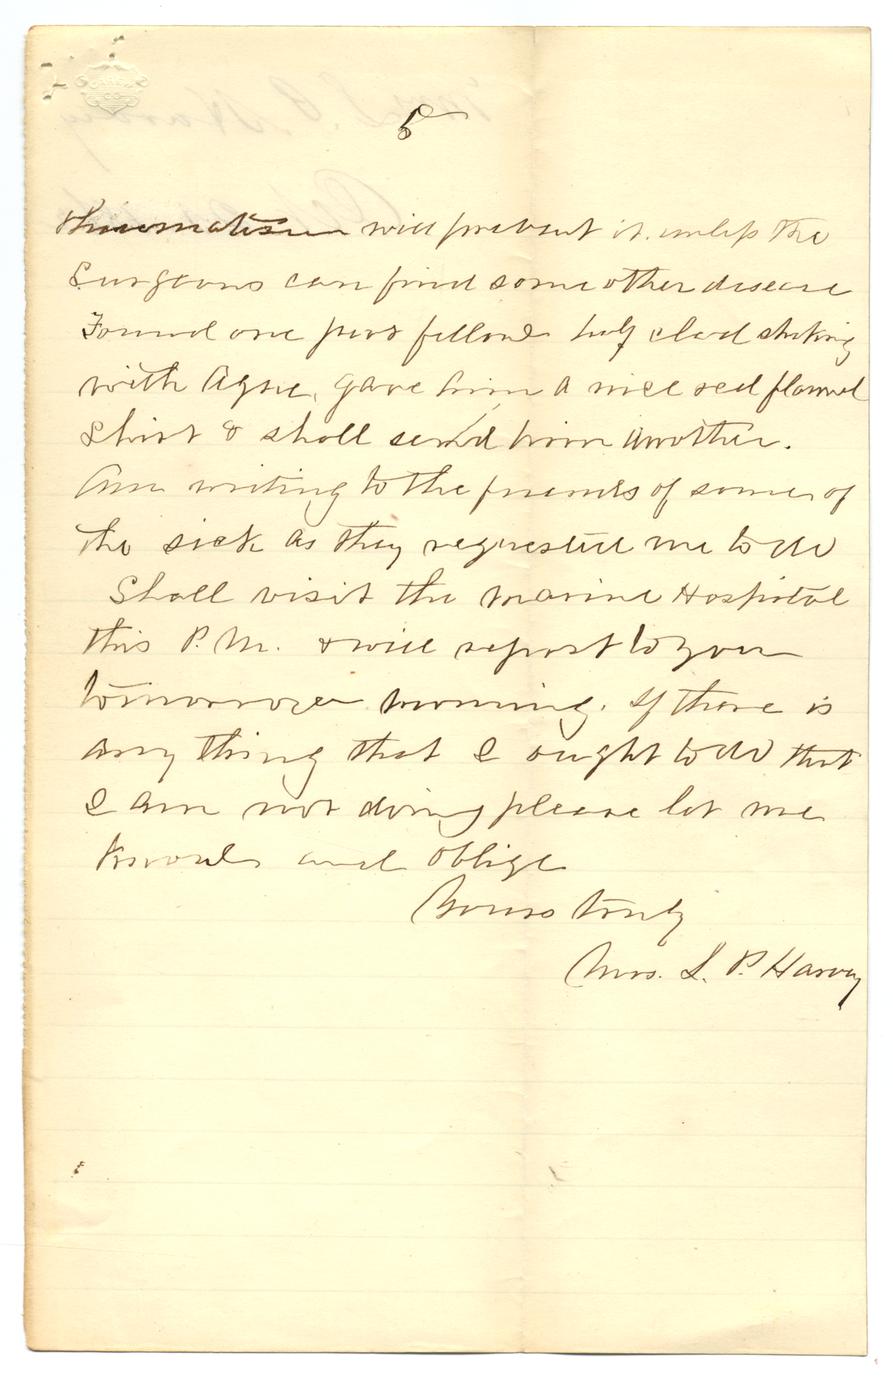 5
rheumatism will prevent it unless the
Surgeons can find some other disease
Found one poor fellow half clad shaking
with Ague, gave him a nice red flannel
Shirt & shall send him another.
Am writing to the friends of some of
the sick as they requested me to do
Shall visit the Marine Hospital
this P.M. & will report to you
tomorrow morning. If there is
any thing that I ought to do that
I am not doing please let me
know and oblige
Yours truly
Mrs. L. P. Harvey